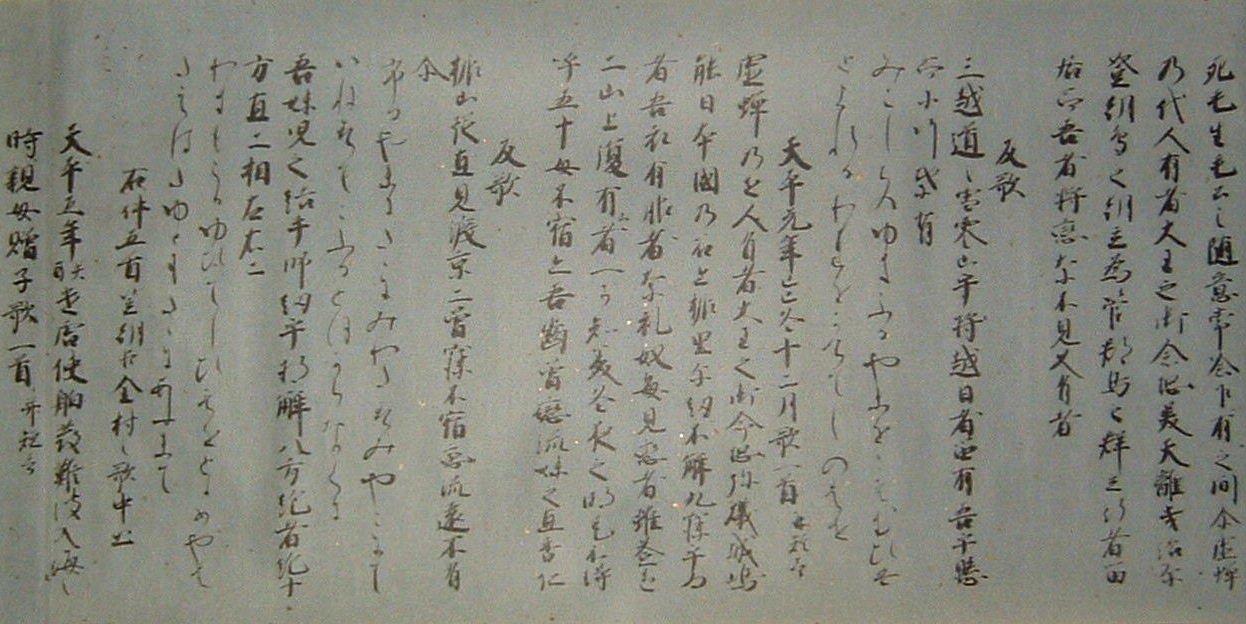 死毛生毛公之随意常念乍有之間尓虚蝉
乃代人有者大王之御命恐美天離夷治尓
登朝鳥之朝立為管群鳥之群立行者留
居而吾者将戀奈不見久有者
反歌
三越道之雪零山乎将越日者留有吾乎懸
而小竹葉背
みこしちのゆきふるやまをこえむひは
とまれるわれをかけてしのはせ
天平元年己巳冬十二月歌一首并短哥
虚蝉乃世人有者大王之御命恐弥礒城嶋
能日本國乃石上振里尓紐不解丸寐乎為
者吾衣有服者奈礼奴毎見戀者雖益色
二山上復有山者一可知美冬夜之明毛不得
呼五十母不宿二吾齒曽戀流妹之直香仁
反歌
振山従直見渡京二曽寐不宿戀流遠不有
尓
ふるやまゆたゝにみわたすみやこにそ
いねすてこふるとほからなくに
吾妹児之結手師紐乎将解八方絶者絶十
方直二相左右二
わきもこかゆひてしひもをとかめやも
たえはたゆともたゝにあふまて
右件五首笠朝臣金村之歌中出
天平五年癸酉遣唐使舶發難波入海之
時親母贈子歌一首并短哥